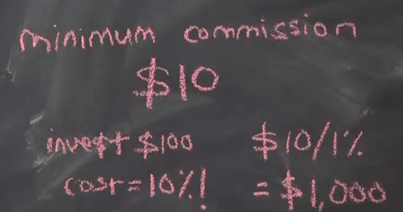 minimum commission
$10
invest $100 $10/1%
cost = 10%! = $1,000